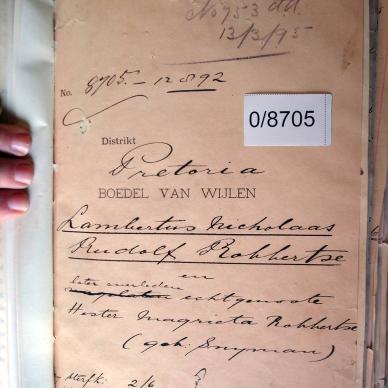 No 753 d.d.
13/3/95
No. 8705. – 12892
0/8705
Distrikt
Pretoria
BOEDEL VAN WIJLEN
Lambertus Nicholaas
Rudolf Robbertse
en
later overleden
echtgenoote
Hester Magrieta Robbertse
(geb: Snyman)
sterfk: 2/6